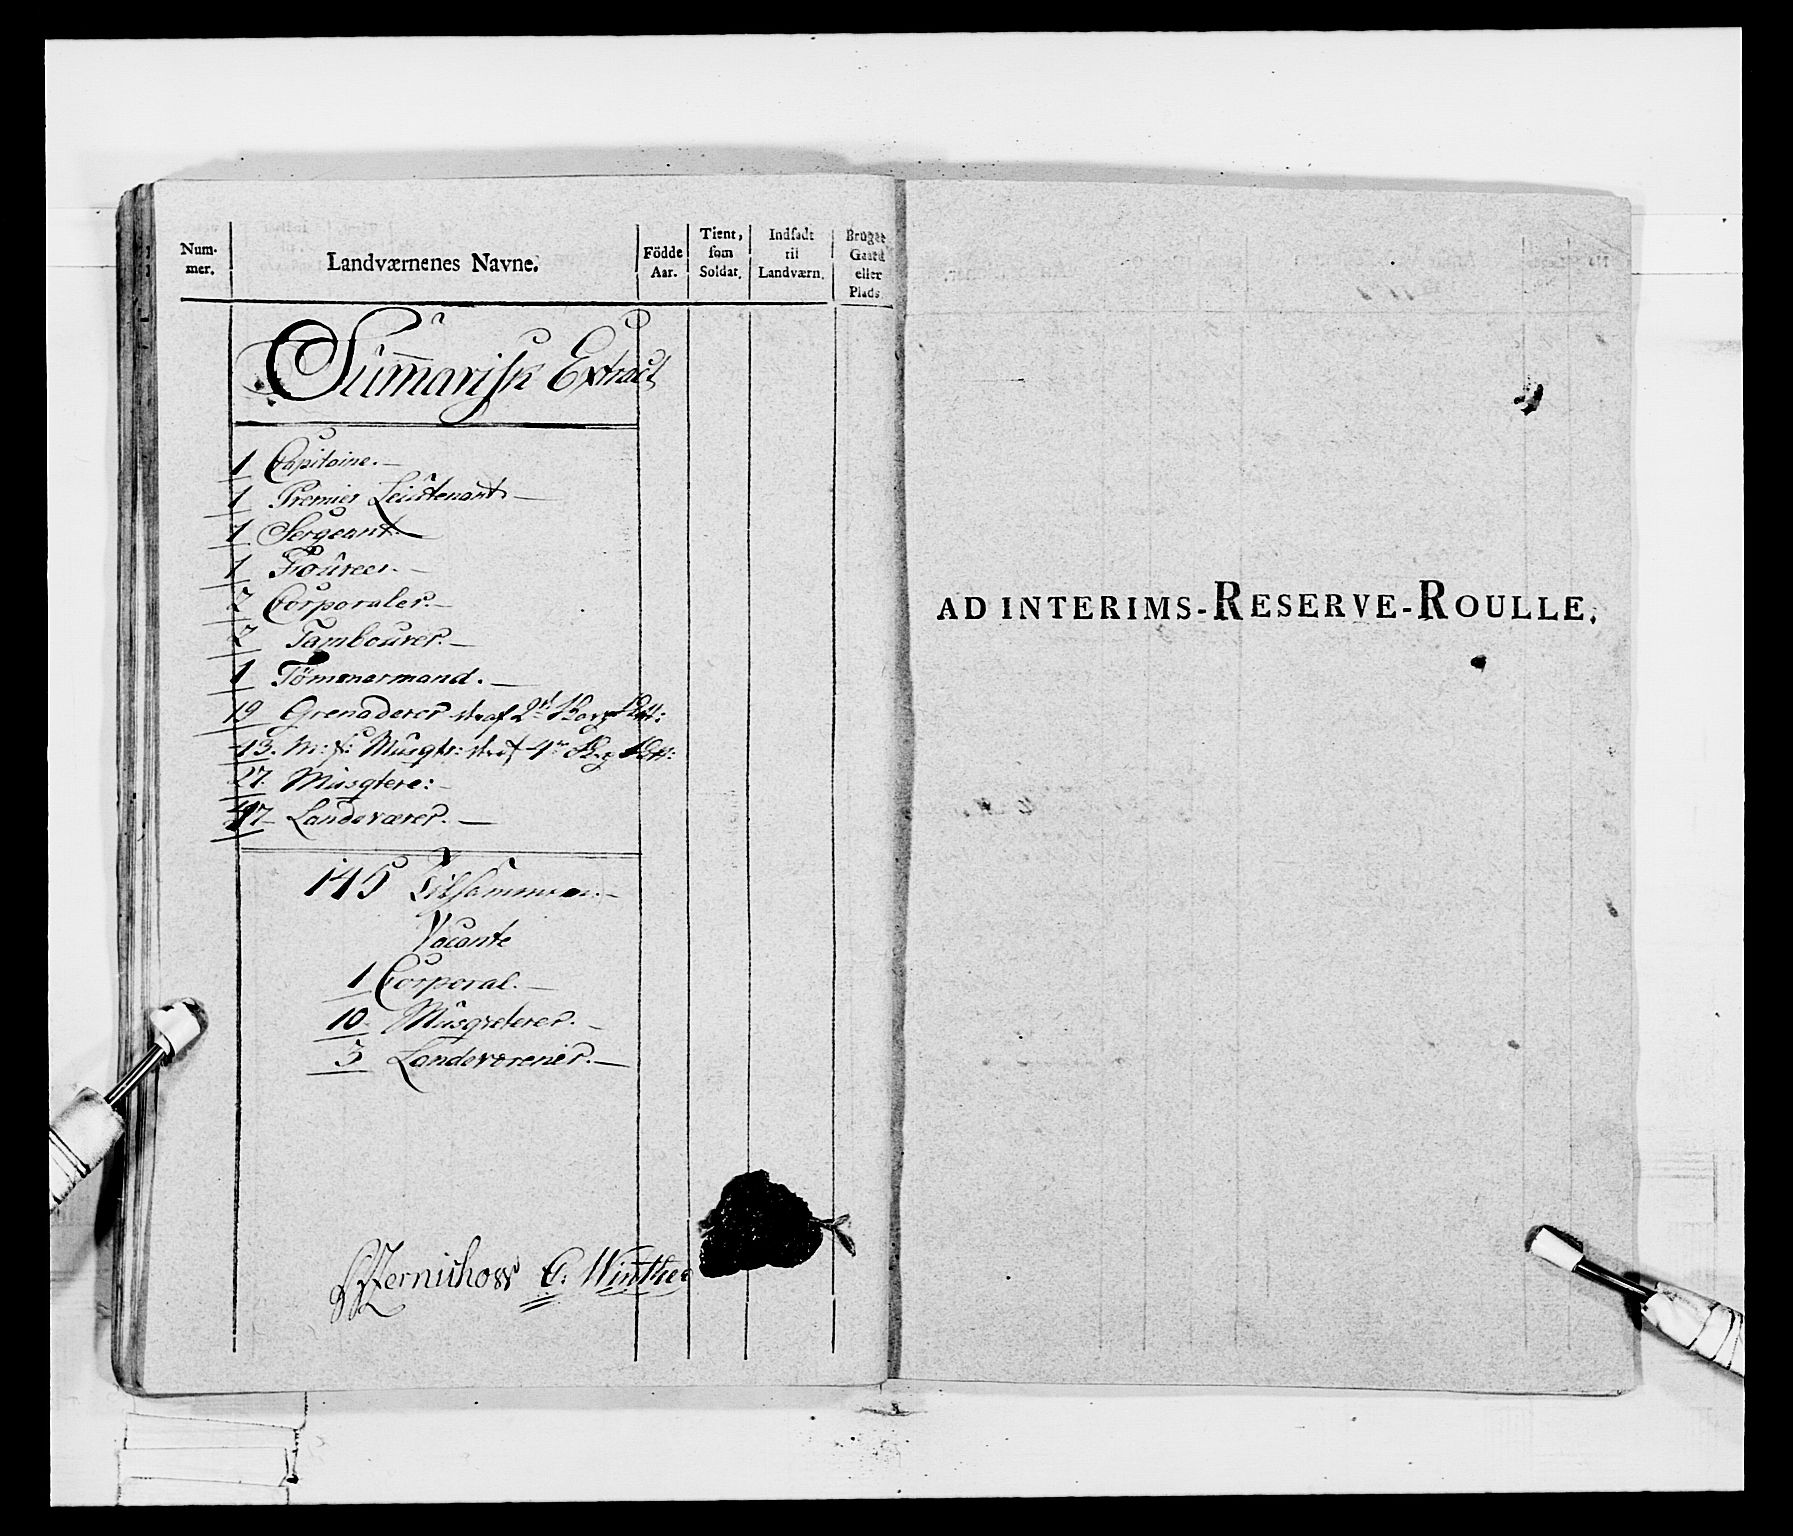 Num-
mer.
Landværnenes Navne.
Födde
Aar.
Tient,
som
Soldat.
Indsadt
til
Landværn.
Bruger
Gaard
eller
Plads
Sum̄arisk Extract
1 Capitaine.
1 Premier Leiutenant
1 Sergeant
1 Foureer.
2 Corporaler.
2 Tambourer.
1 Tömmermand.
19 Grenaderer straf 2den Borg
43. m: f: Musqtr: straf 4de
27. Musqtere:
47 Landeværer.
145 Tilsammen.
Vacante
1 Corporal.
10. Musqveterer.
3 Landeværener.
C: Winther
AD INTERIMS-RESERVE-ROULLE.